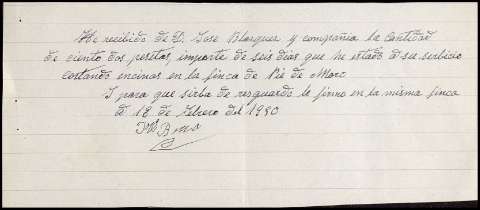 He recibido de D. Jose Blazquez y compañia la Cantidad
de ciento dos pesetas importe de seis dias que he estado a su serbicio
cortando encinas en la finca de Pie de Moro
I para que sirba de resguardo le firmo en la misma finca
a 18 de Febrero del 1930